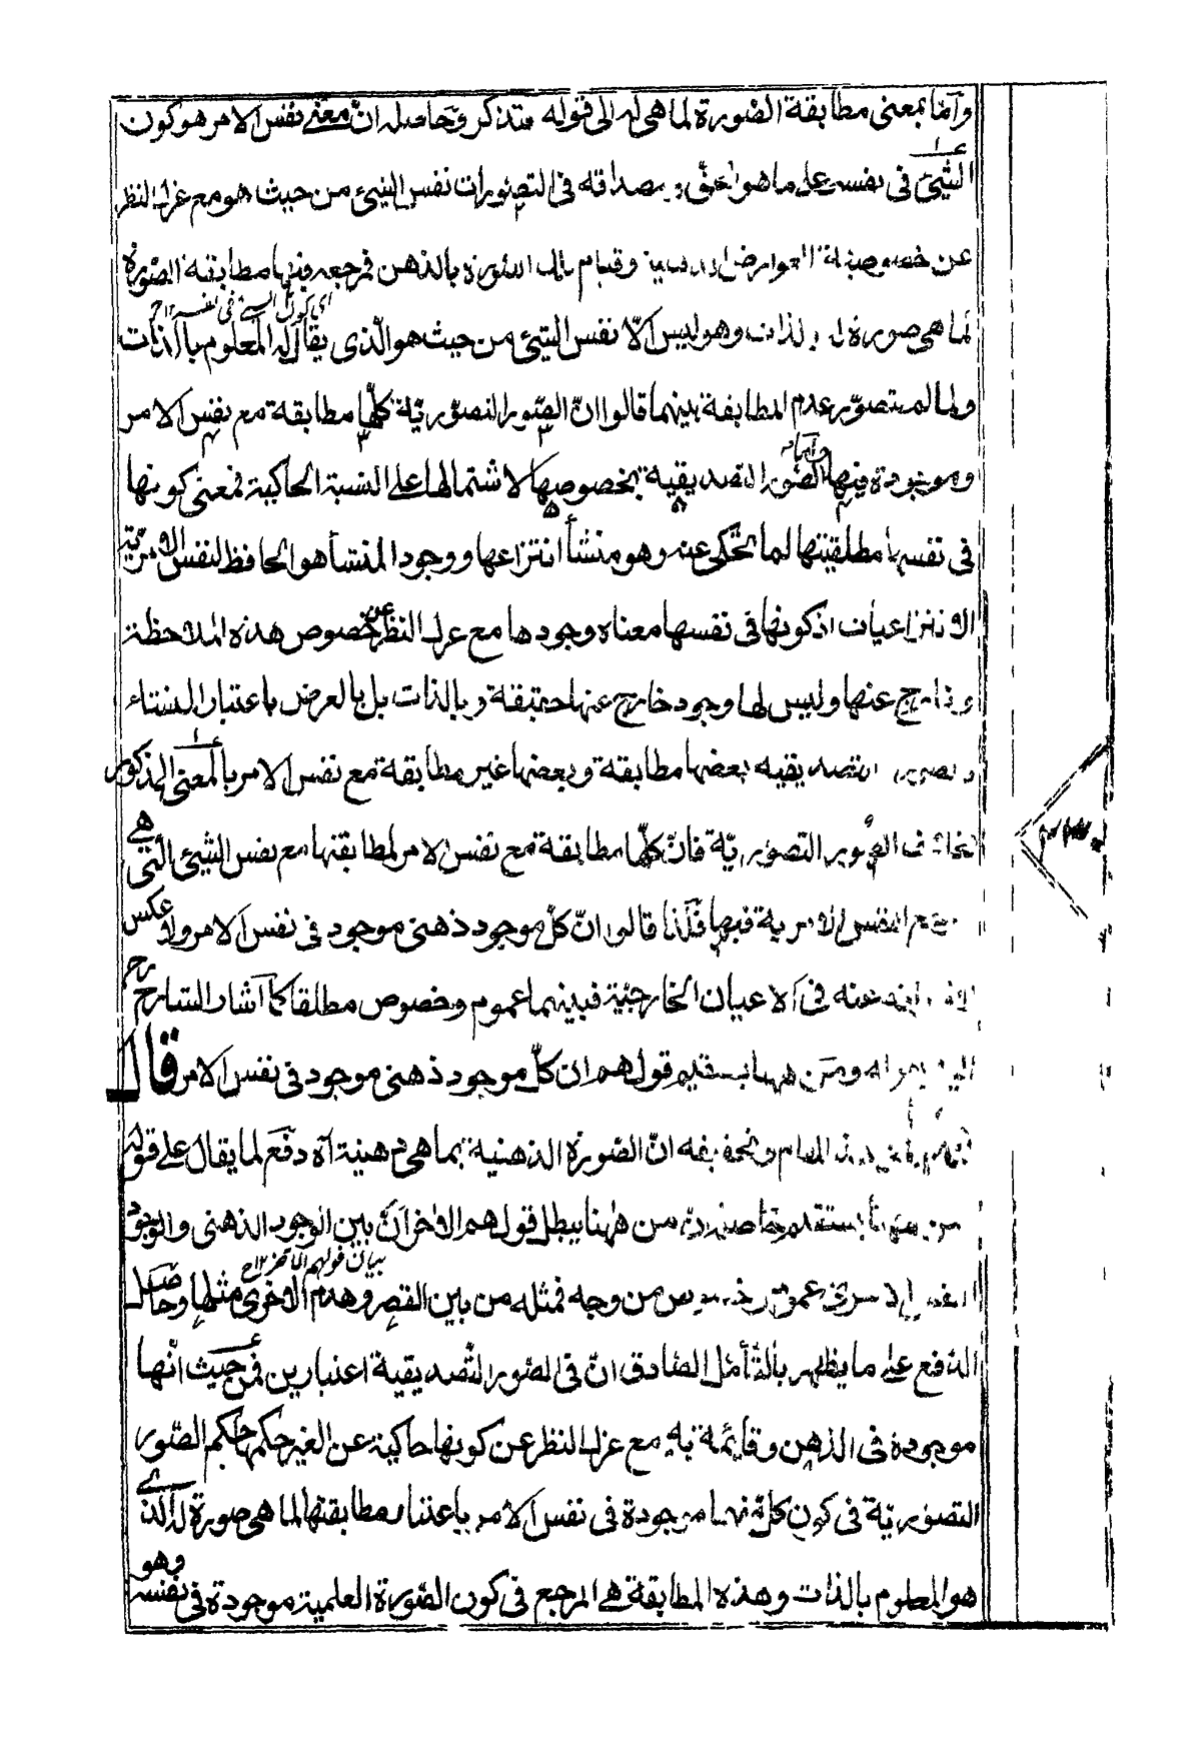 وآما بمعنى مطابقة الصّورة لما هى له الى قوله فتذكر وحاصله انّ معنى نفس الامر هو كون
الشئ فى نفسه على ما هو الحق ومصداقه فى التصورات نفس الشئ من حيث هو مع عزل النظر
عن خصوصية العوارض وقيام تلك الصورة بالذهن فمرجعه فيها مطابقة الصّورة
اى كون الشئ فى نفسه ١٢ ح
لما هى صورة له بالذات وهو ليس الّا نفس الشئ من حيث هو الّذى يقال له المعلوم بالذات
ولما لم يتصوّر عدم المطابقة بينهما قالوا انّ الصّور التصوّريّة كلّها مطابقة مع نفس الامر
وموجودة فيها واما الصّور التصديقية بخصوصها لاشتمالها على النسبة الحاكية فمعنى كونها
فى نفسها مطابقتها لما تحكى عنه وهو منشأ انتزاعها ووجود المنشأ هو الحافظ لنفس الامرية
الانتزاعيات اذ كونها فى نفسها معناه وجودها مع عزل النظر عن خصوص هذه الملاحظة
وخارج عنها وليس لها وجود خارج عنها حقيقة وبالذات بل بالعرض باعتبار المنشاء
التصديقيه بعضها مطابقة وبعضها غير مطابقة مع نفس الامر بالمعنى المذكور
بخلاف الصور التصوريّة فانّ كلّها مطابقة مع نفس الامر لمطابقتها مع نفس الشئ التى هى
النفس الامرية فيها فلذا قالوا انّ كلّ موجود ذهنى موجود فى نفس الامر ولا عكس
عنه فى الاعيان الخارجيّة فبينهما عموم وخصوص مطلقا كما آشار الشارح رح
اليه بقوله ومن ههنا يستقيم قولهم ان كلّ موجود ذهنى موجود فى نفس الامر قال
المقام وتحقيقه انّ الصّورة الذهنية بما هى ذهنية آه دفع لما يقال على قوله
من ههنا يستقيم من ههنا يبطل قولهم الاخر انّ بين الوجود الذهنى والوجود
بيان قولهم الآخر ١٢ ح
عموم من وجه فمثله من بين القصر وهدم الاخرى مثلها وحاصل
الدفع على ما يظهر بالتأمل الصّادق انّ فى الصّور التّصديقية اعتبارين فمن حيث انّها
موجودة فى الذهن وقائمة به مع عزل النظر عن كونها حاكية عن الغير حكمها حكم الصّور
التصوريّة فى كون كلّ منها موجودة فى نفس الامر باعتبار مطابقتها لما هى صورة له الذى
هو المعلوم بالذات وهذه المطابقة هى المرجع فى كون الصّورة العلمية موجودة فى نفسه وهو